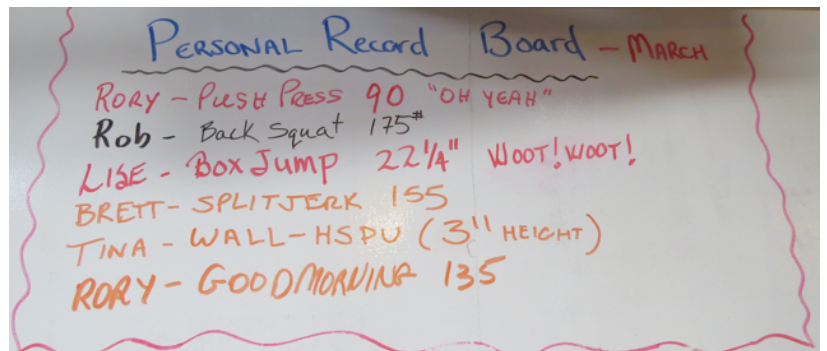 PERSONAL Record Board - MARCH
RORY - PUSH PRESS 90 "OH YEAH"
Rob - Back Squat 175#
LISE - BOX JUMP 22 1/4" WOOT! WOOT!
BRETT - SPLIT JERK 155
TINA - WALL - HSPU (3" HEIGHT)
RORY - GOODMORNING 135